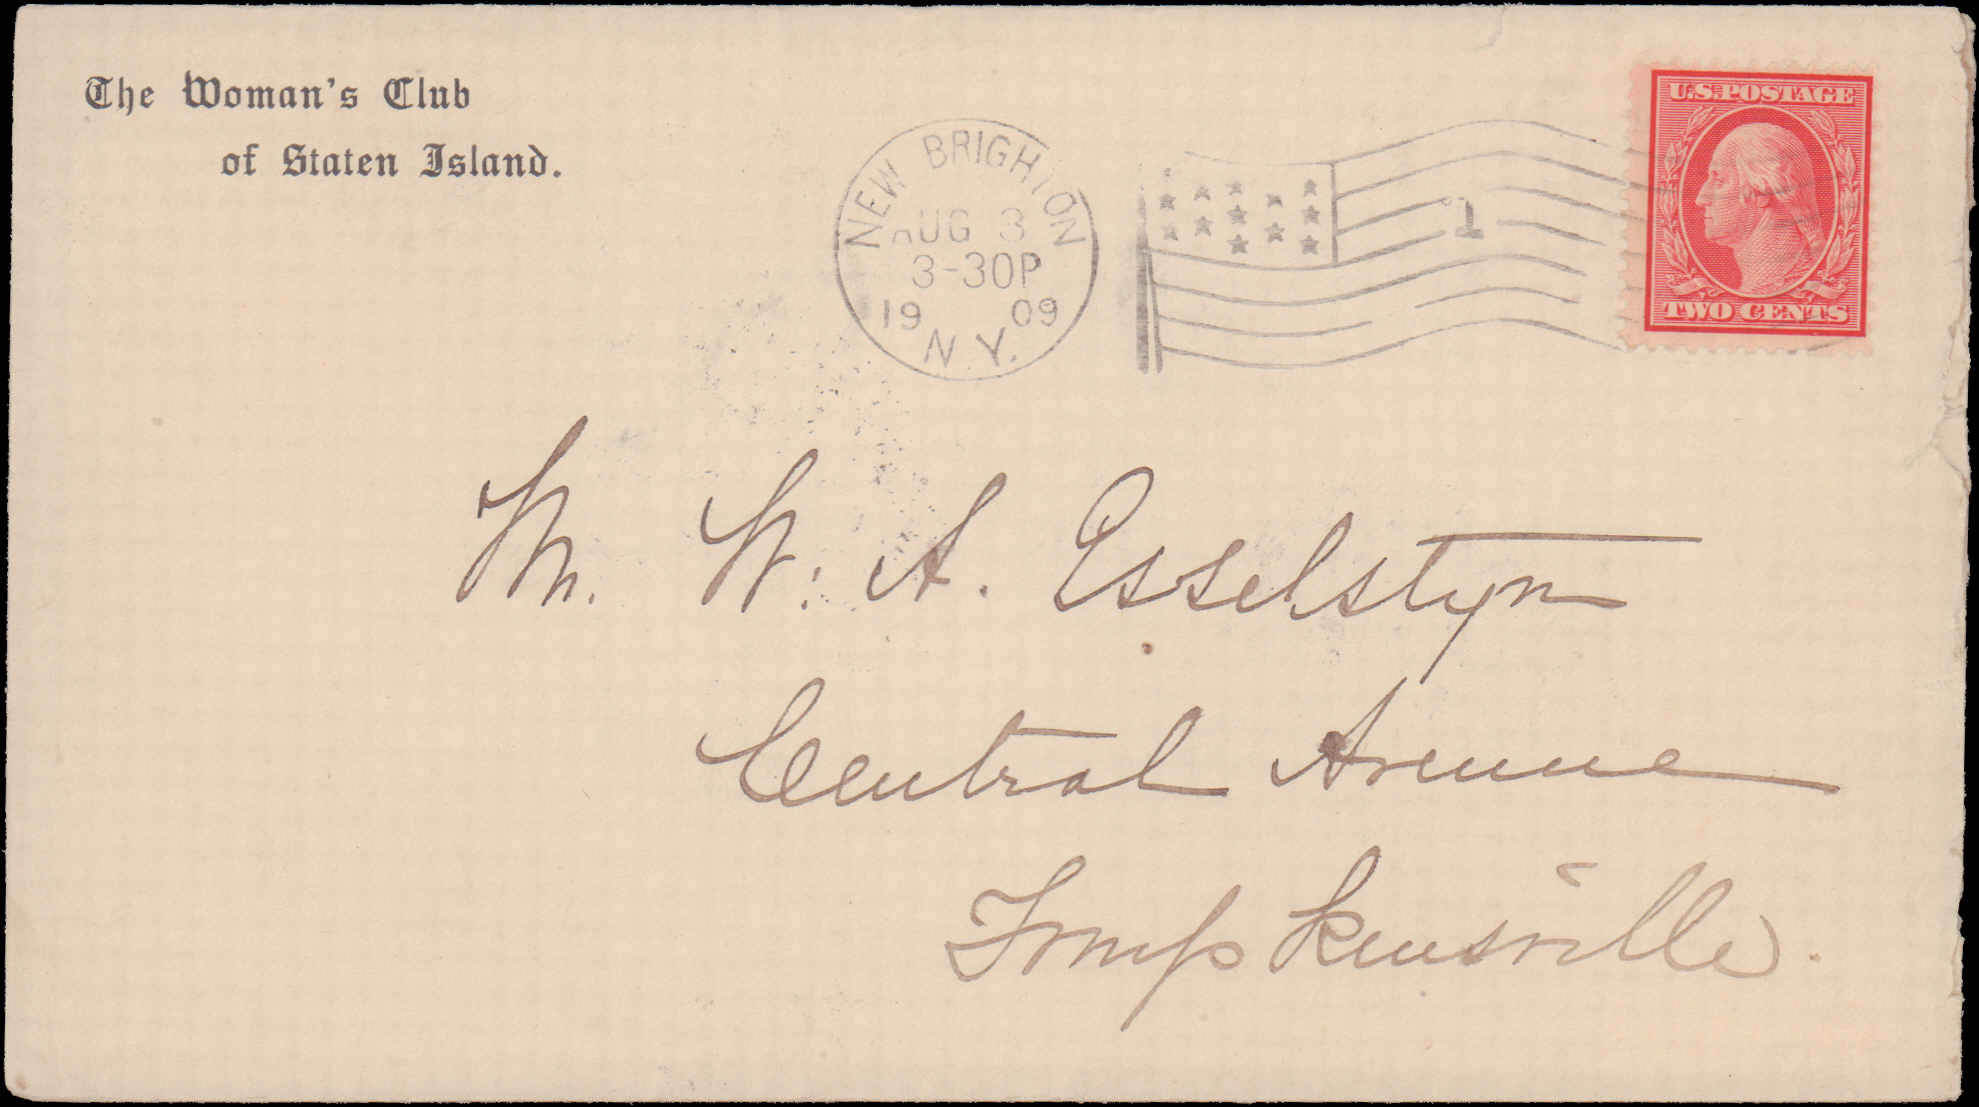 The Woman's Club
of Staten Island.
NEW BRIGHTON
AUG 3
3-30P
19 09
N.Y.
1
U.S. POSTAGE
TWO CENTS
Mr. W. A. Esselstyn
Central Avenue
Tompkinsville.